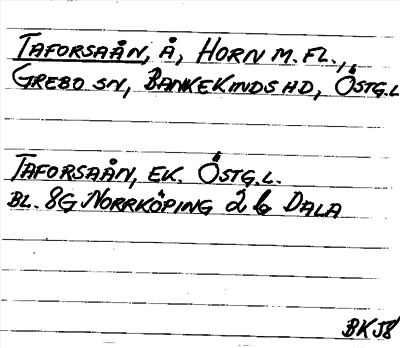 TAFORSAÅN, Å, HORN M. FL.,
GREBO SN, BANKEKINDS HD, ÖSTG.L
TAFORSAÅN, EK. ÖSTG.L.
BL. 8G NORRKÖPING 2 b DALA
BKJ8